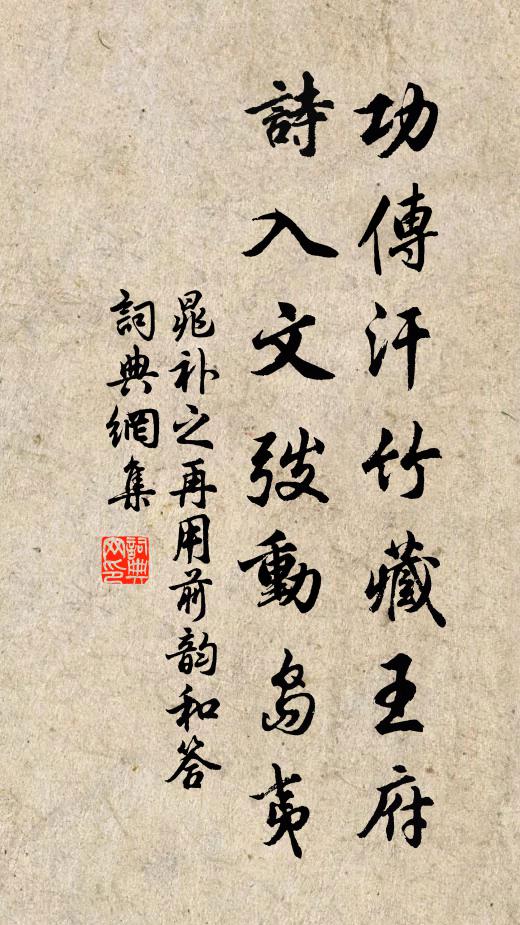 功傳汗竹藏王府
詩入文弢動島夷
晁补之再用前韵和答
詞典網集
詞典網印